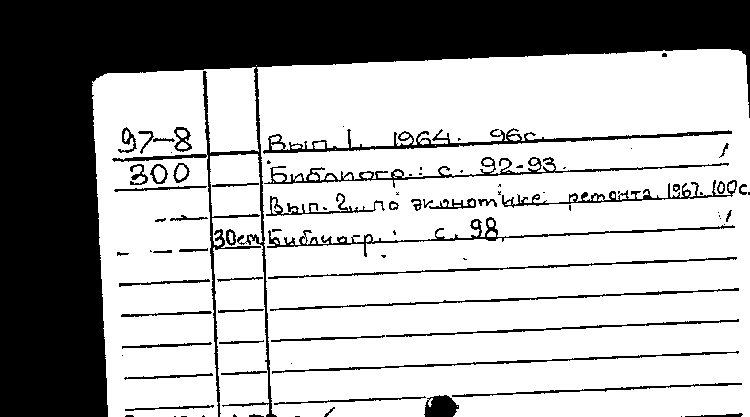 97-8 Вып. 1. 1964. 96с.
300 Библиогр.: с. 92-93.
Вып. 2. по экономике ремонта. 1967. 100с.
30см Библиогр.: с. 98.